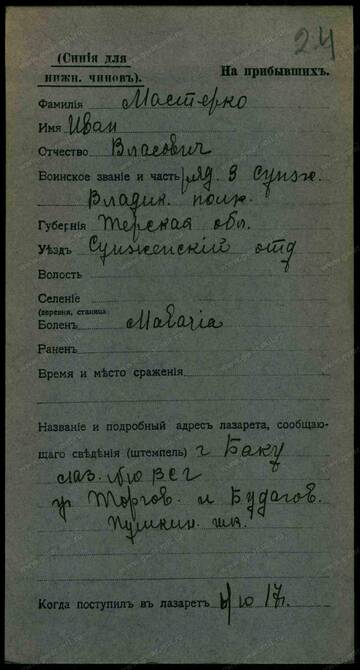 24
(Синія для
нижн. чиновъ).
На прибывшихъ.
Фамилія Мастерко
Имя Иван
Отчество Власович
Воинское званіе и часть ряд. 3 Сунж.
Владик. полк.
Губернія Терская обл.
Уѣздъ Сунженскій отд
Волость
Селеніе
(деревня, станица)
Боленъ Малачія
Раненъ
Время и мѣсто сраженія
Названіе и подробный адресъ лазарета, сообщаю-
щаго свѣдѣнія (штемпель) г Баку
лаз. ВСГ
уг Торгов. и Будагов.
Пушкин. шк.
Когда поступилъ въ лазаретъ 17 г.